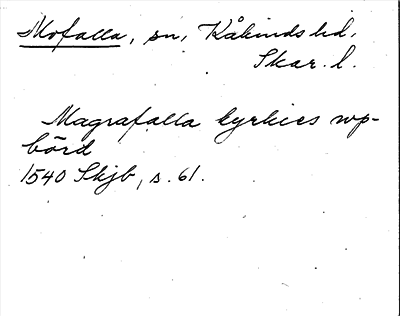 Mofalla, sn, Kåkinds hd,
Skar. l.
Magrafalla kyrkies up-
börd
1540 Skjb, s. 61.